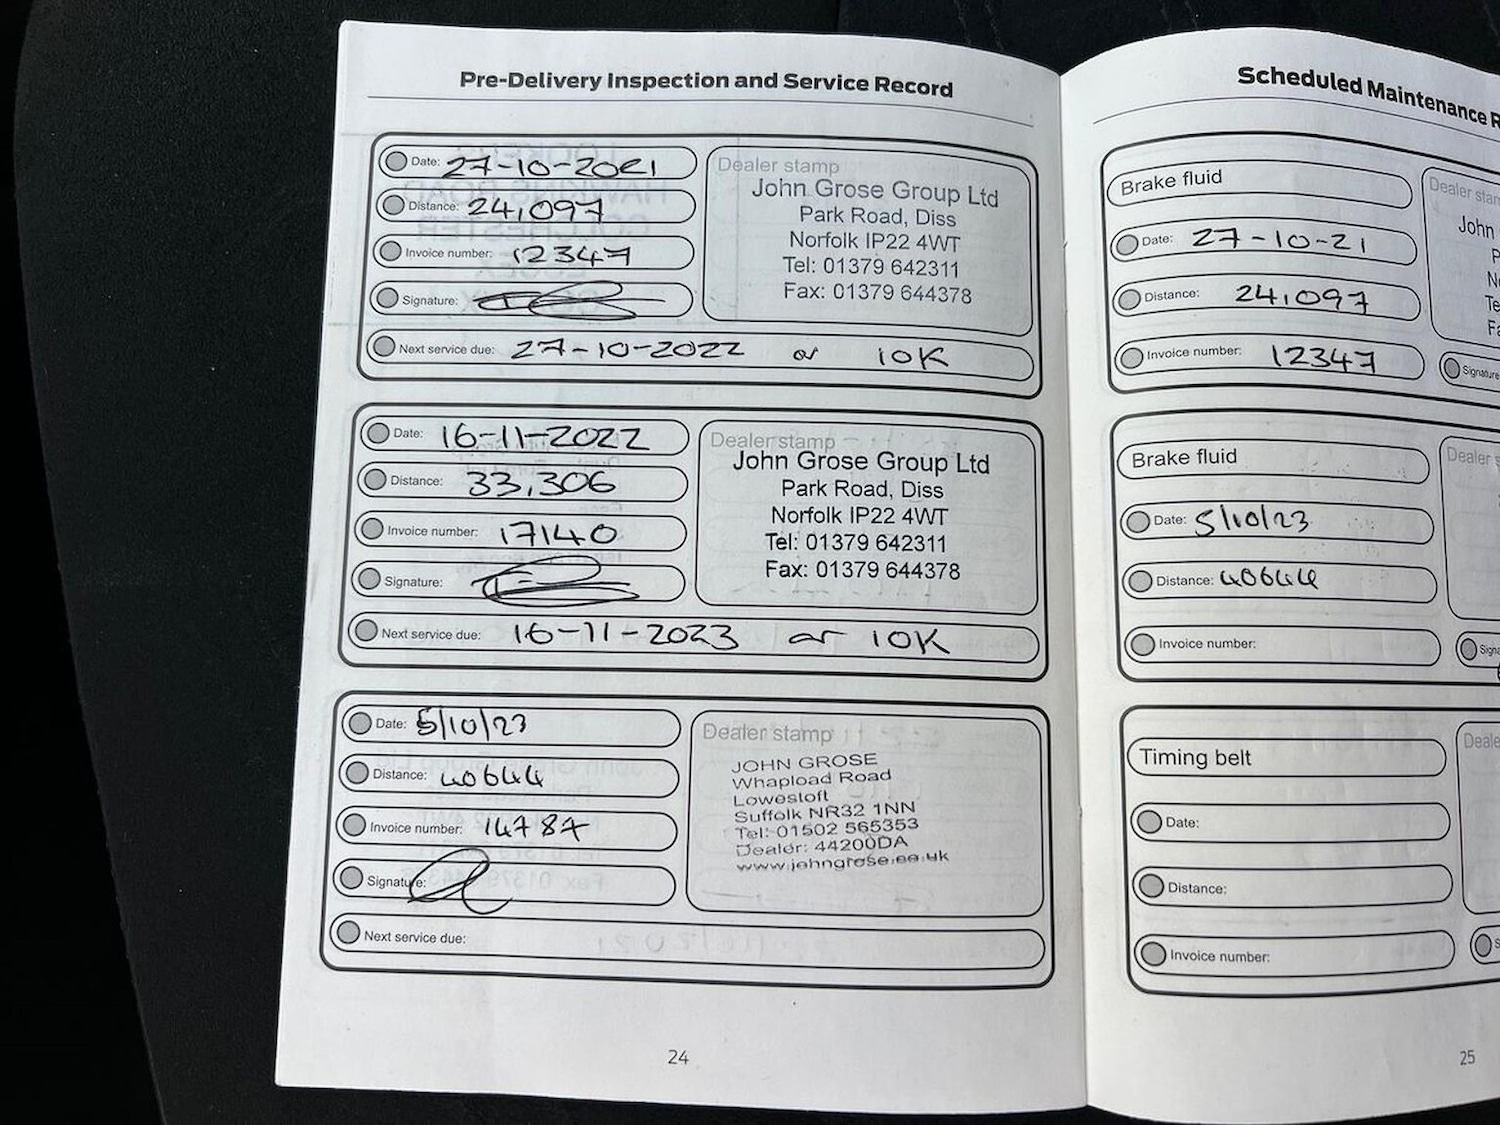 Pre-Delivery Inspection and Service Record
Date: 27-10-2021
Distance: 24,097
Invoice number: 12347
Signature:
Next service due: 27-10-2022 or 10K
Dealer stamp
John Grose Group Ltd
Park Road, Diss
Norfolk IP22 4WT
Tel: 01379 642311
Fax: 01379 644378
Date: 16-11-2022
Distance: 33,306
Invoice number: 17140
Signature:
Next service due: 16-11-2023 or 10K
Dealer stamp
John Grose Group Ltd
Park Road, Diss
Norfolk IP22 4WT
Tel: 01379 642311
Fax: 01379 644378
Date: 5/10/23
Distance: 40644
Invoice number: 14787
Signature:
Next service due:
Dealer stamp
JOHN GROSE
Whapload Road
Lowestoft
Suffolk NR32 1NN
Tel: 01502 565353
Dealer: 44200DA
www.johngrose.co.uk
24
Scheduled Maintenance R
Brake fluid
Date: 27-10-21
Distance: 24,097
Invoice number: 12347
Dealer stam
John
Signature
Brake fluid
Date: 5/10/23
Distance: 40644
Invoice number:
Dealer s
Signa
Timing belt
Date:
Distance:
Invoice number:
Deale
S
25